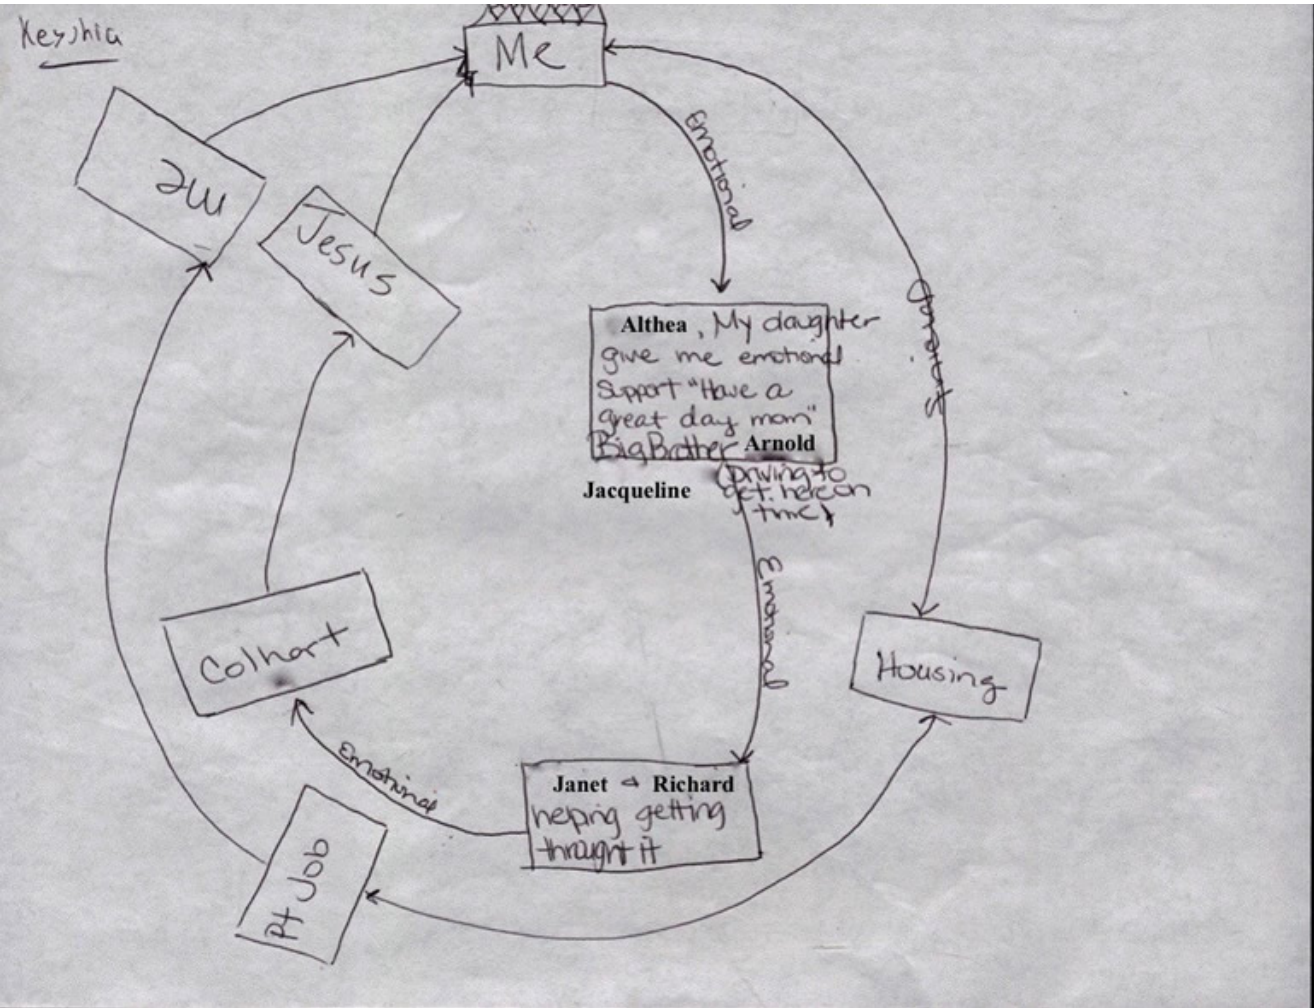 Keyshia
Me
me
Jesus
Emotional
Althea, My daughter
give me emotional
Support "Have a
great day mom"
Big Brother Arnold
(Driving to
Jacqueline get here on
time)
Emotional
Colhart
Housing
Emotional
Janet & Richard
helping getting
throught it
Pt Job